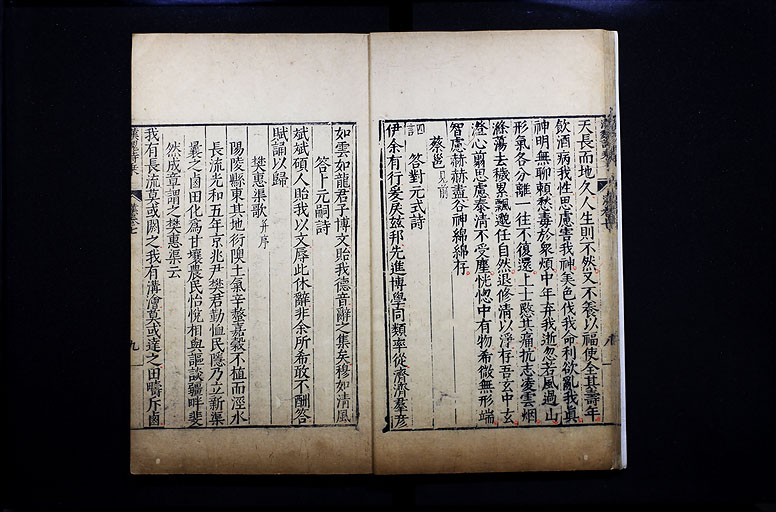 天長而地久人生則不然又不養以福使全其壽年
飲酒病我性思慮害我神美色伐我命利欲亂我真
神明無聊賴愁毒於眾煩中年棄我逝忽若風過山
形氣各分離一往不復還上士愍其痛抗志凌雲烟
滌蕩去穢累飄邈任自然退修清以淨存吾玄中玄
澄心翦思慮泰清不受塵恍惚中有物希微無形端
智慮赫赫盡谷神綿綿存
蔡邕見前
四言
答對元式詩
伊余有行爰戾茲邦先進博學同類率從濟濟羣彥
如雲如龍君子博文貽我德音辭之集矣穆如清風
答卜元嗣詩
斌斌碩人貽我以文辱此休辭非余所希敢不酬答
賦誦以歸
樊惠渠歌并序
陽陵縣東其地衍隩土氣辛螫嘉穀不植而涇水
長流光和五年京兆尹樊君勤恤民隱乃立新渠
曩之鹵田化為甘壤農民怡悅相與謳談疆畔斐
然成章謂之樊惠渠云
我有長流莫或閼之我有溝澮莫或達之田疇斥鹵
九